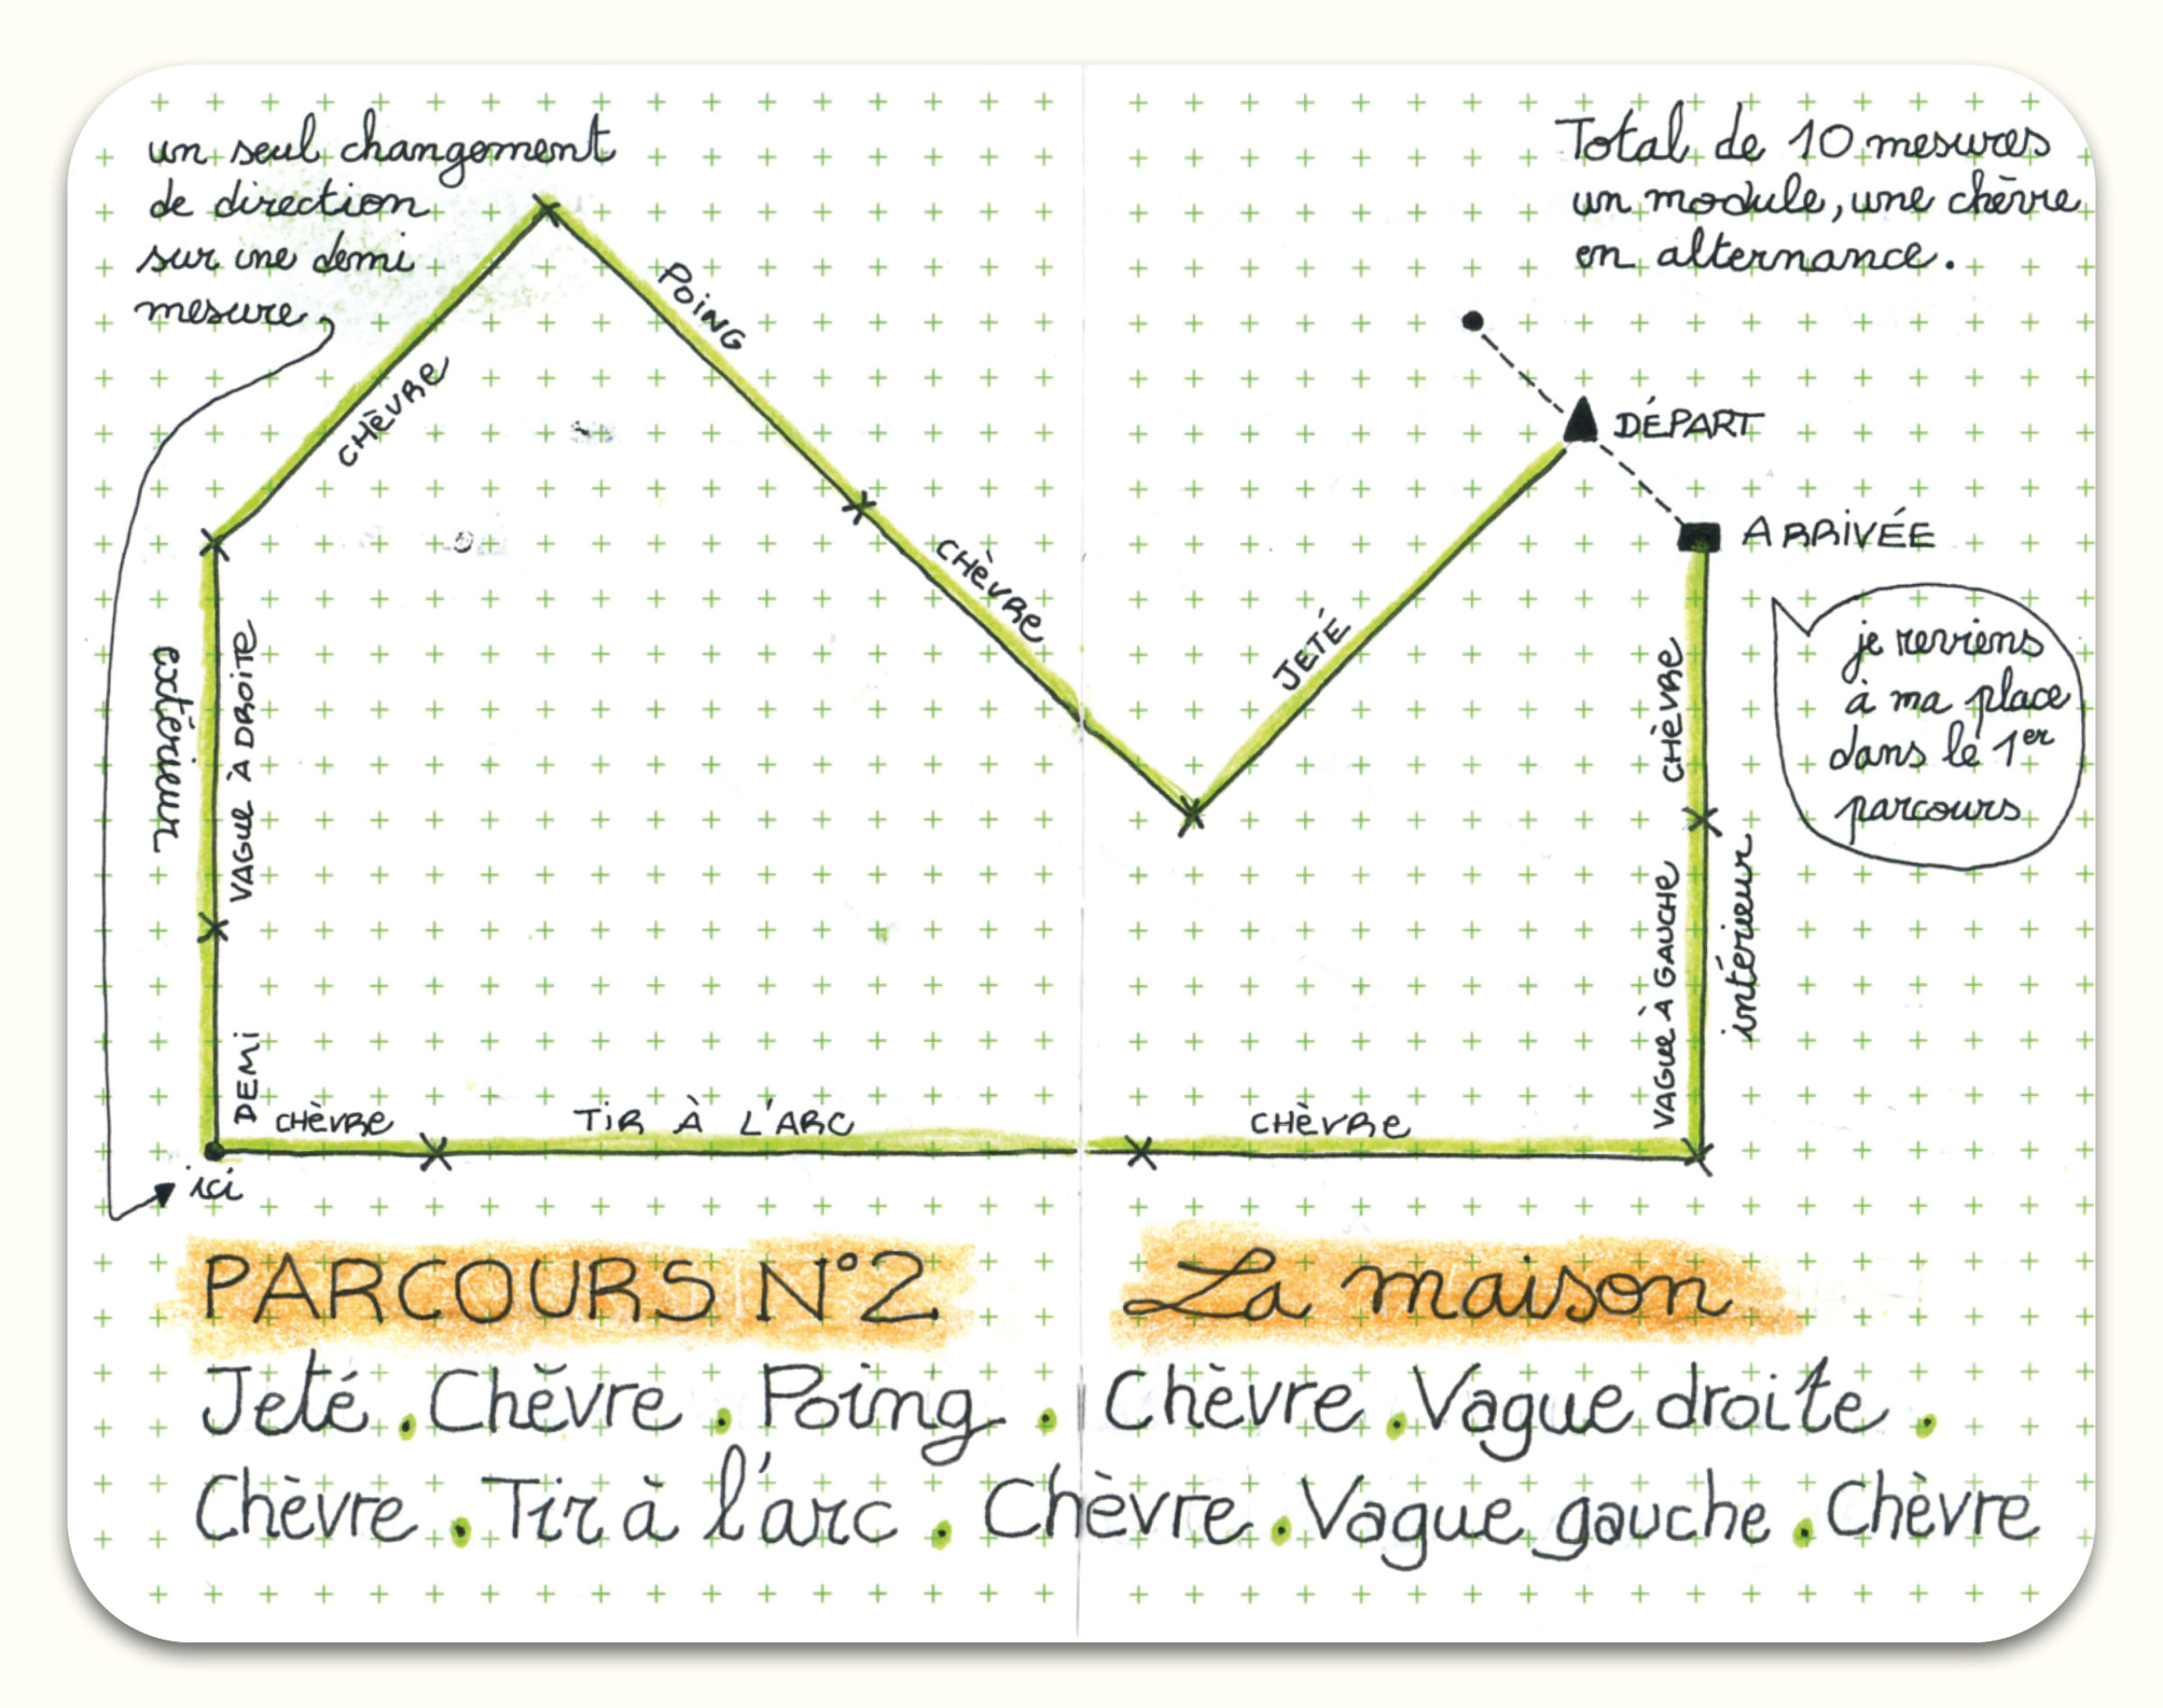 un seul changement
de direction
sur une demi
mesure
Total de 10 mesures
un module, une chèvre
en alternance.
CHÈVRE
POING
CHÈVRE
JETÉ
DÉPART
ARRIVÉE
je reviens
à ma place
dans le 1er
parcours
extérieur
VAGUE À DROITE
CHÈVRE
VAGUE À GAUCHE
intérieur
DEMI
CHÈVRE
TIR À L'ARC
CHÈVRE
ici
PARCOURS N°2
La maison
Jeté . Chèvre . Poing . Chèvre . Vague droite .
Chèvre . Tir à l'arc . Chèvre . Vague gauche . Chèvre